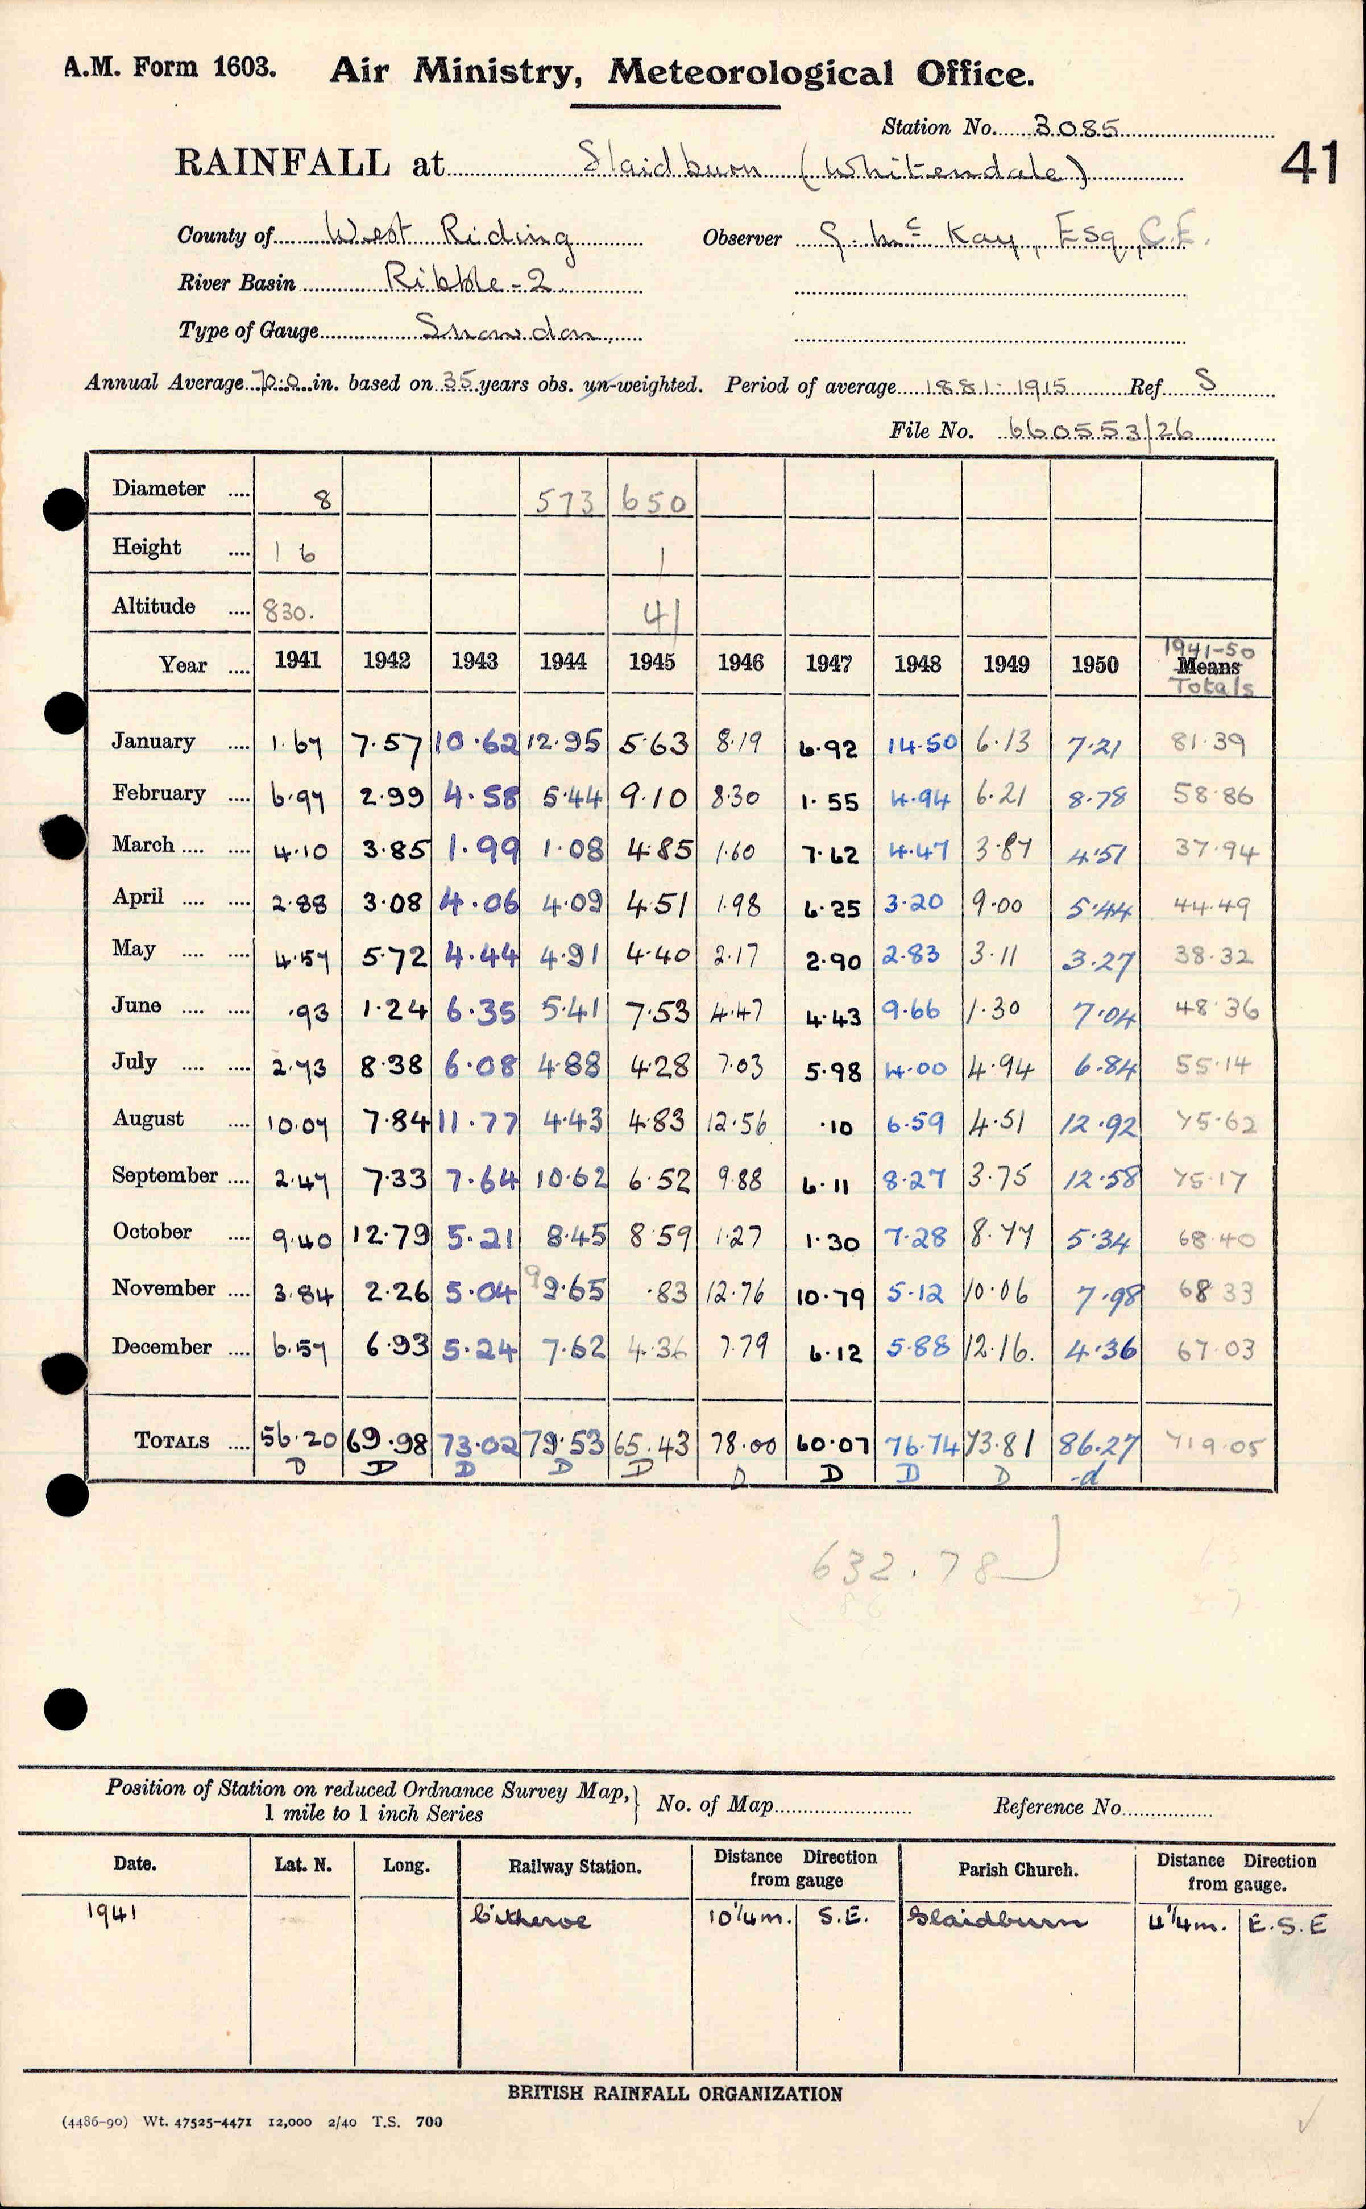 A.M. Form 1603. Air Ministry, Meteorological Office.
Station No. 3085
RAINFALL at Slaidburn (Whitendale) 41
County of West Riding Observer G. Mc Kay, Esq, C.E.
River Basin Ribble - 2
Type of Gauge Snowdon
Annual Average 70.0 in. based on 35 years obs. un-weighted. Period of average 1881-1915 Ref. S
File No. 660553/26
Diameter .... 8 573 650
Height .... 1 6 1
Altitude .... 830. 41
Year .... 1941 1942 1943 1944 1945 1946 1947 1948 1949 1950 1941-50 Means Totals
January .... 1.67 7.57 10.62 12.95 5.63 8.19 6.92 14.50 6.13 7.21 81.39
February .... 6.97 2.99 4.58 5.44 9.10 8.30 1.55 4.94 6.21 8.78 58.86
March .... .... 4.10 3.85 1.99 1.08 4.85 1.60 7.62 4.47 3.87 4.51 37.94
April .... .... 2.88 3.08 4.06 4.09 4.51 1.98 6.25 3.20 9.00 5.44 44.49
May .... .... 4.57 5.72 4.44 4.91 4.40 2.17 2.90 2.83 3.11 3.27 38.32
June .... .... .93 1.24 6.35 5.41 7.53 4.47 4.43 9.66 1.30 7.04 48.36
July .... .... 2.73 8.38 6.08 4.88 4.28 7.03 5.98 4.00 4.94 6.84 55.14
August .... 10.07 7.84 11.77 4.43 4.83 12.56 .10 6.59 4.51 12.92 75.62
September .... 2.47 7.33 7.64 10.62 6.52 9.88 6.11 8.27 3.75 12.58 75.17
October .... 9.40 12.79 5.21 8.45 8.59 1.27 1.30 7.28 8.77 5.34 68.40
November .... 3.84 2.26 5.04 9 9.65 .83 12.76 10.79 5.12 10.06 7.98 68.33
December .... 6.57 6.93 5.24 7.62 4.36 7.79 6.12 5.88 12.16. 4.36 67.03
TOTALS .... 56.20 69.98 73.02 79.53 65.43 78.00 60.07 76.74 73.81 86.27 719.05
D D D D D D D D D -d
632.78
Position of Station on reduced Ordnance Survey Map,
1 mile to 1 inch Series } No. of Map Reference No.
Date. Lat. N. Long. Railway Station. Distance Direction from gauge Parish Church. Distance Direction from gauge.
1941 Clitheroe 10¼m. S.E. Slaidburn 4¼m. E.S.E
BRITISH RAINFALL ORGANIZATION
(4486-90) Wt. 47525-4471 12,000 2/40 T.S. 700